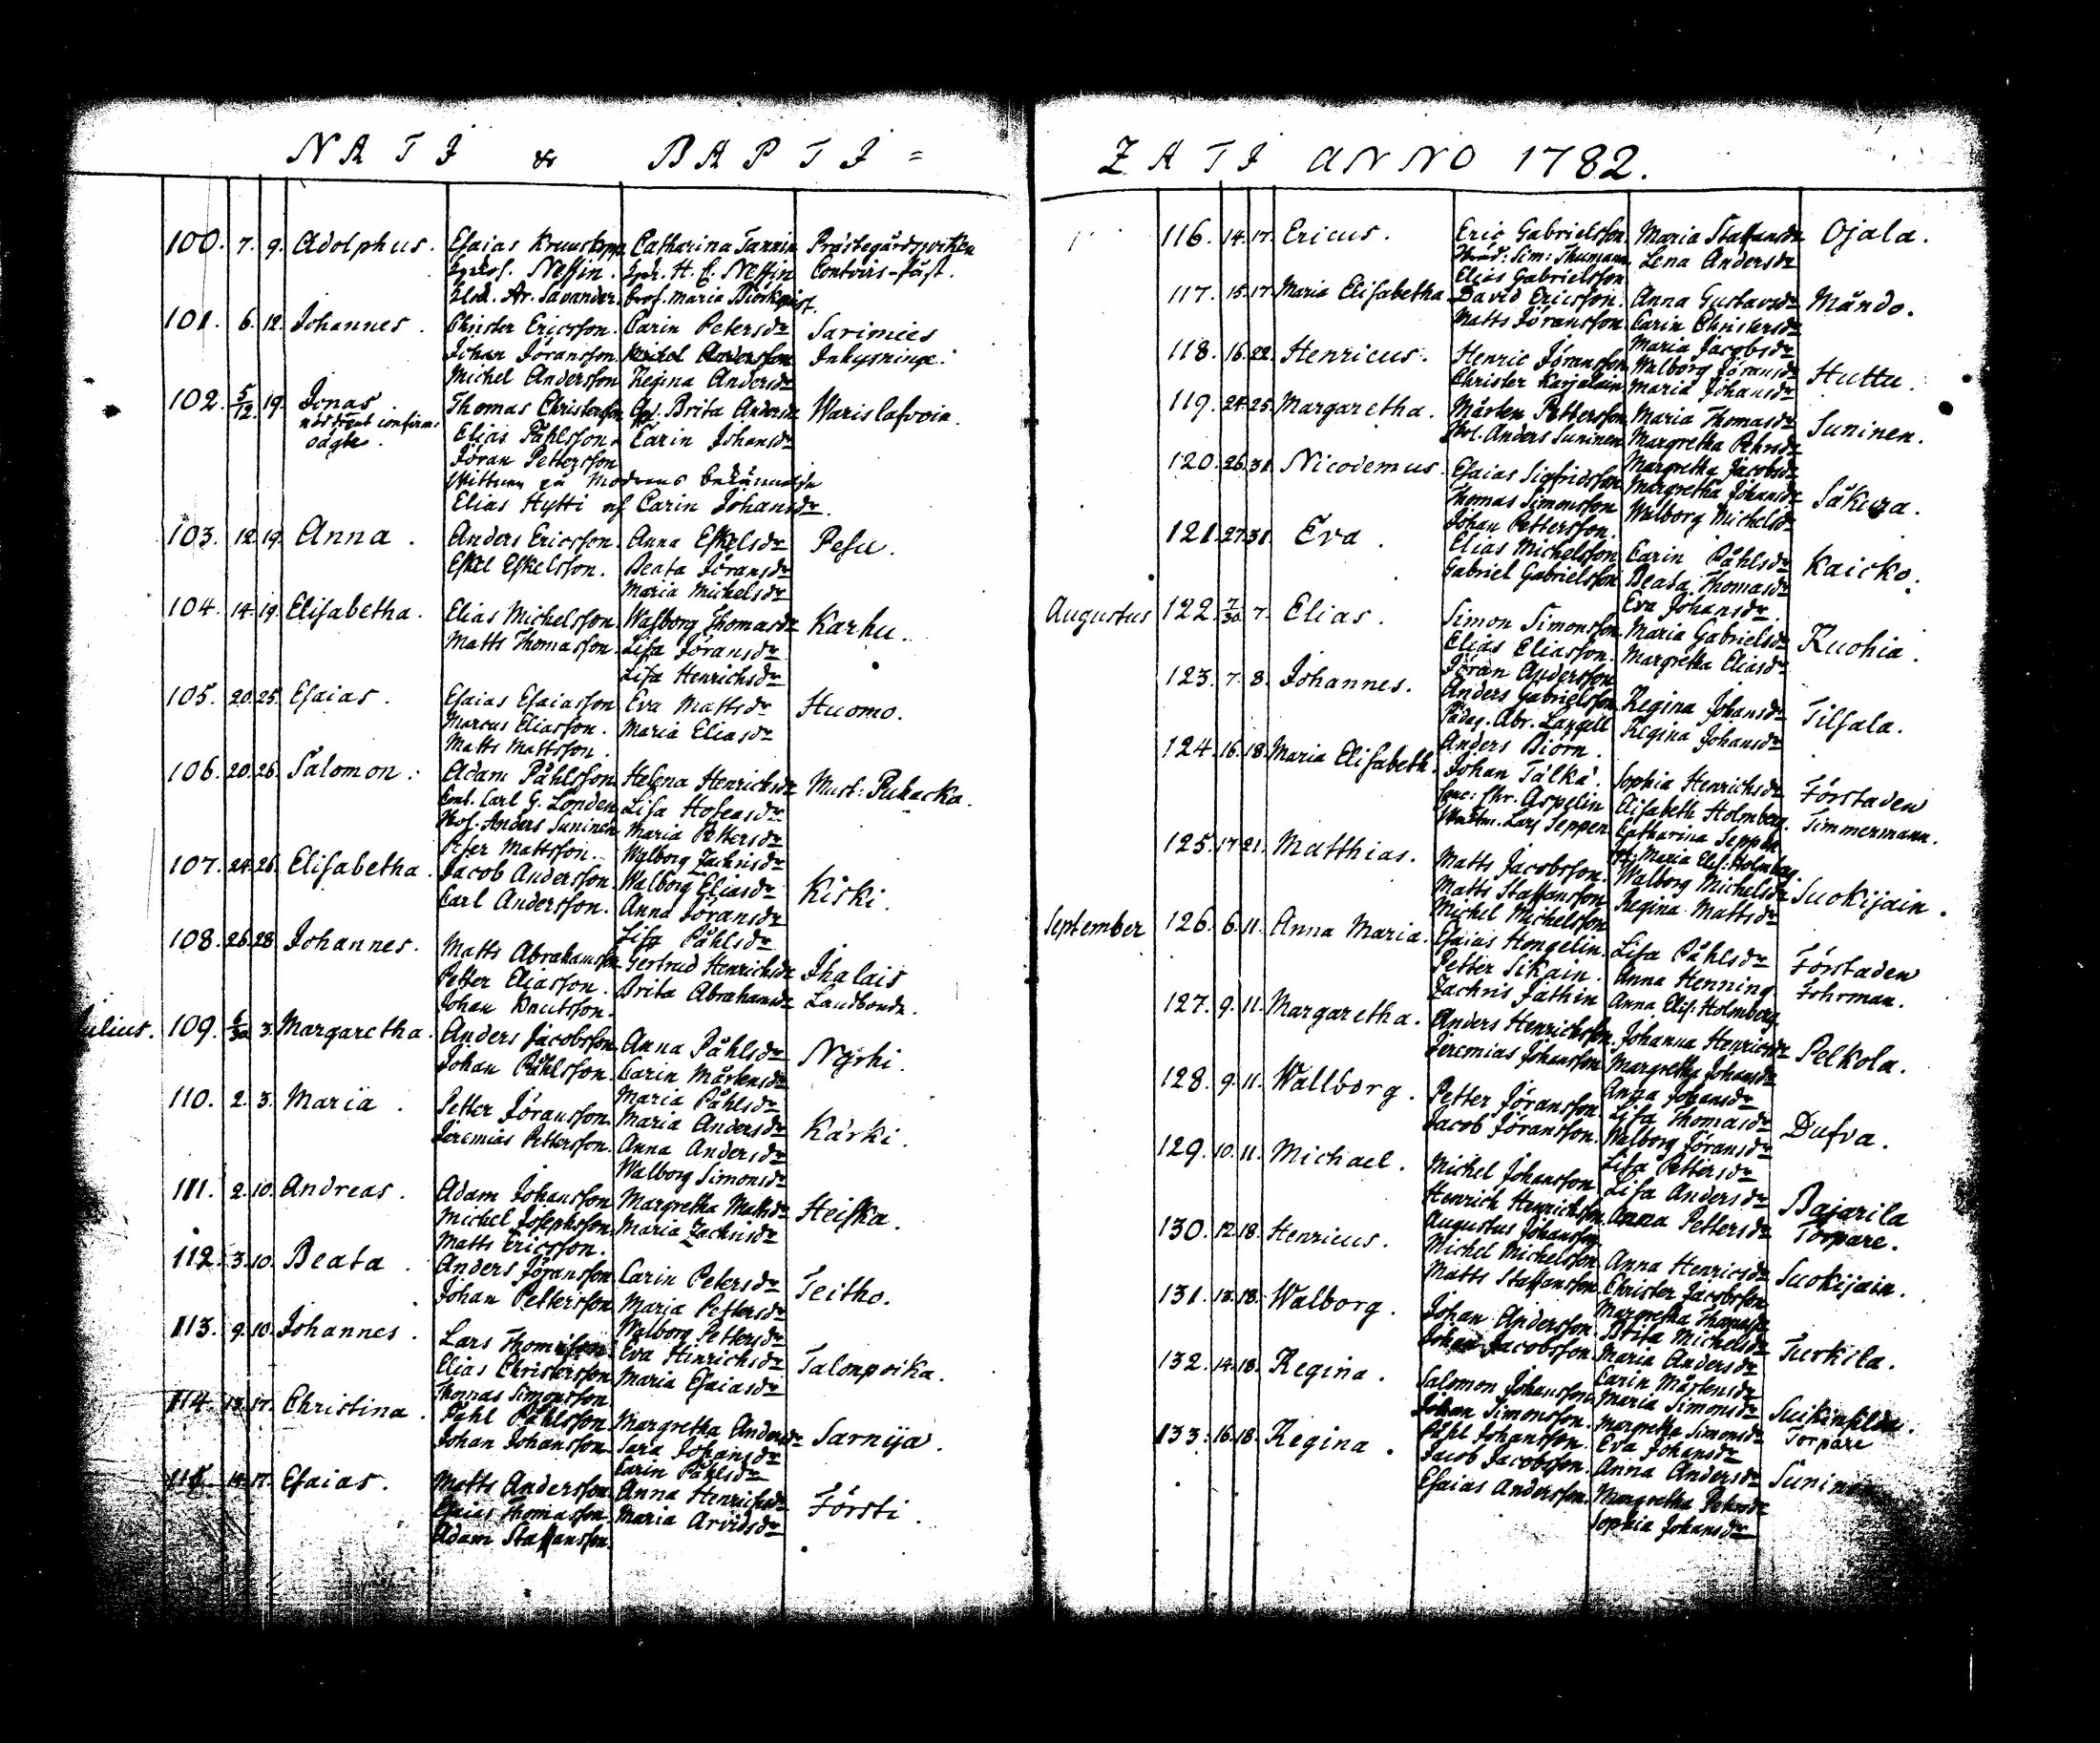 NATI & BAPTI=
100. 7. 9. Adolphus. Esaias Kruuskopp Catharina Tannin Prästegårdsvikken
Neffin. H. C. Neffin Contoirs-
Ar. Savander. Prof. Maria Biörkqvist.
101. 6. 12. Johannes. Christer Ericsson. Carin Petersdr Sarimies
Johan Jöransson Michel Andersson Inhysninge.
Michel Andersson Regina Andersdr
102. 5/12. 19. Jonas. Thomas Christersson Brita Andersdr Warislafvoia.
nödtöent confirm: Elias Påhlsson. Carin Johansdr
sägte. Jöran Pettersson
Wittnen på Modrens bekännelse
Elias Hytti of Carin Johansdr.
103. 12. 19. Anna. Anders Ericsson. Anna Eskelsdr Pesu.
Eskel Eskelsson. Beata Jöransdr
Maria Michelsdr
104. 14. 19. Elisabetha. Elias Michelsson Walborg Thomasdr Karhu.
Matts Thomasson. Lisa Jöransdr
Lisa Henrichsdr
105. 20. 25. Esaias. Esaias Esaiasson Eva Mattsdr Huomo.
Marcus Eliasson. Maria Eliasdr
Matts Mattsson.
106. 20. 26. Salomon. Adam Påhlsson Helena Henrichsdr Must: Pukacka.
Cont. Carl G. Londen Lisa Hoseasdr
Anders Suninen Maria Pettersdr
Peter Mattsson. Walborg Zachrisdr
107. 24. 26. Elisabetha. Jacob Andersson. Walborg Eliasdr Kiski.
Carl Andersson. Anna Jöransdr
Lisa Påhlsdr
108. 26. 28. Johannes. Matts Abrahamsson Gertrud Henrichsdr Ihalais
Petter Eliasson. Brita Abrahamsdr Landbonde.
Johan Knutsson.
Julius. 109. 6/30 3. Margaretha. Anders Jacobsson Anna Påhlsdr Nyrhi.
Johan Påhlsson. Carin Mårtensdr
Maria Påhlsdr
110. 2. 3. Maria. Petter Jöransson. Maria Andersdr Kärki.
Jeremias Pettersson. Anna Andersdr
Walborg Simonsdr
111. 2. 10. Andreas. Adam Johansson Margretha Mattsdr Heiska.
Michel Josephsson. Maria Zachrisdr
Matts Ericsson.
112. 3. 10. Beata. Anders Jöransson Carin Petersdr Teitho.
Johan Pettersson Maria Pettersdr
Walborg Pettersdr
113. 9. 10. Johannes. Lars Thomasson Eva Hinrichsdr Talonpoika.
Elias Christersson Maria Esaiasdr
Thomas Simonsson
114. 13. 17. Christina. Påhl Påhlsson Margretha Andersdr Sarnija.
Johan Johansson Sara Johansdr
Carin Påhlsdr
115. 14. 17. Esaias. Matts Andersson Anna Henrichsdr Försti.
Esaias Thomasson. Maria Arvidsdr
Adam Staffansson
ZATI ANNO 1782.
116. 14. 17. Ericus. Eric Gabrielsson. Maria Staffansdr Ojala.
Sim: Thumann. Lena Andersdr
Elias Gabrielsson
117. 15. 17. Maria Elisabetha David Ericsson. Anna Gustavsdr Måndo.
Matts Jöransson Carin Christersdr
Maria Jacobsdr
118. 16. 22. Henricus. Henric Jöransson Walborg Jöransdr Huttu.
Christer Karjalain Maria Johansdr
119. 24. 25. Margaretha. Mårten Pettersson Maria Thomasdr Suninen.
Anders Suninen Margretha Pehrsdr
Margretha Jacobsdr
120. 26. 31. Nicodemus. Esaias Sigfridsson Margretha Johansdr Säkera.
Thomas Simonsson Walborg Michelsdr
Johan Pettersson.
121. 27. 31. Eva. Elias Michelsson Carin Påhlsdr Kaicko.
Gabriel Gabrielsson Beata Thomasdr
Eva Johansdr.
Augustus 122. 7/30 7. Elias. Simon Simonsson Maria Gabrielsdr Kuohia.
Elias Eliasson. Margretha Eliasdr
Jöran Andersson
123. 7. 8. Johannes. Anders Gabrielsson Regina Johansdr Tilsala.
Pädag. Abr. Langell Regina Johansdr
Anders Biörn.
124. 16. 18. Maria Elisabeth. Johan Tälkä. Sophia Henrichsdr Förstaden
Chr. Aspelin Elisabeth Holmberg. Timmermann.
Lars Seppen Catharina Seppen
Maria Elis: Holmberg.
125. 17. 21. Matthias. Matts Jacobsson. Walborg Michelsdr Suokijain.
Matts Staffansson Regina Mattsdr
Michel Michelsson
September 126. 6. 11. Anna Maria. Esaias Hongelin. Lisa Påhlsdr Förstaden
Petter Sikain. Anna Henning Fohrman.
Zachris Jäthin Anna Elis: Holmberg.
127. 9. 11. Margaretha. Anders Henricksson. Johanna Henricsdr Pelkola.
Jeremias Johansson Margretha Johansdr
Anna Johansdr
128. 9. 11. Wallborg. Petter Jöransson. Lisa Thomasdr Dufva.
Jacob Jöransson. Walborg Jöransdr
Lisa Pettersdr
129. 10. 11. Michael. Michel Johansson Lisa Andersdr Bajarila
Henrich Henricksson. Anna Pettersdr Torpare.
Augustus Johansson
130. 12. 18. Henricus. Michel Michelsson Anna Henricsdr Suokijain.
Matts Staffansson Christer Jacobsson
Margretha Thomasdr
131. 13. 18. Walborg. Johan Andersson. Brita Michelsdr Turkila.
Johan Jacobsson Maria Andersdr
Carin Mårtensdr
132. 14. 18. Regina. Salomon Johansson Maria Simonsdr
Johan Simonsson. Margretha Simonsdr Torpare
133. 16. 18. Regina. Påhl Johansson. Eva Johansdr
Jacob Jacobsson. Anna Andersdr Suninen
Esaias Andersson. Margretha Pehrsdr
Sophia Johansdr